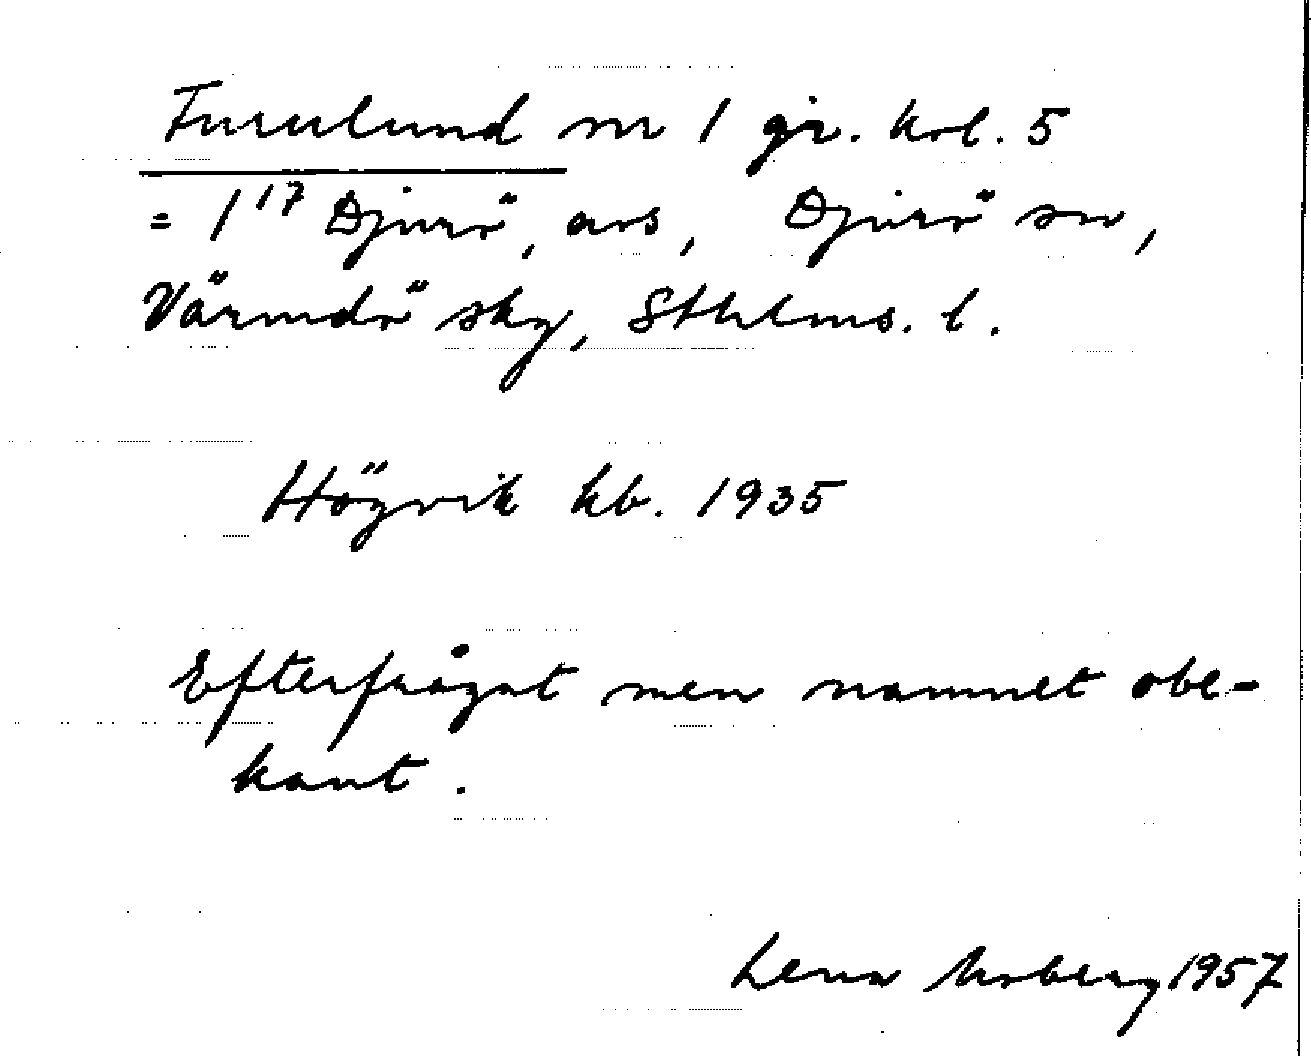 Furulund nr 1 gr. kol. 5
= 1¹⁷ Djurö, avs, Djurö sn,
Värmdö sky, Sthlms. l.
Högvik kb. 1935
Efterfrågat men namnet obe-
kant.
Lena Moberg 1957